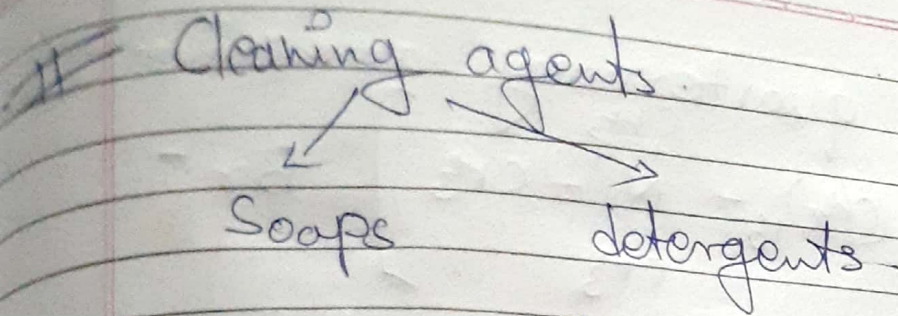 # Cleaning agents.
Soaps detergents.